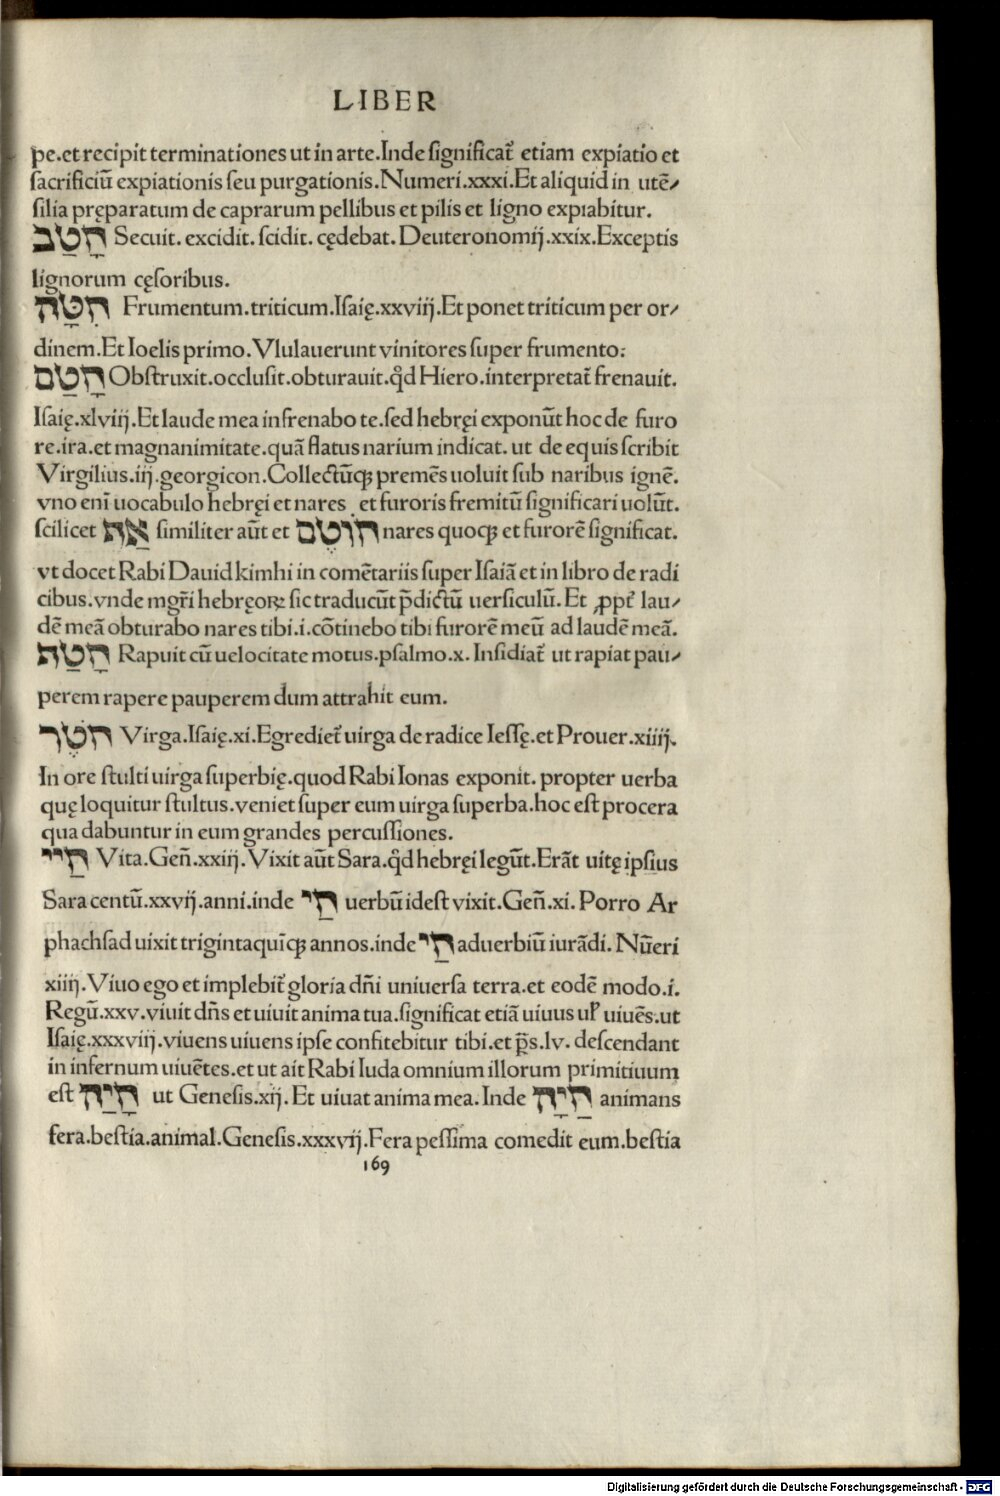 LIBER
pe.et recipit terminationes ut in arte.Inde significat᷑ etiam expiatio et
sacrificiū expiationis seu purgationis.Numeri.xxxi.Et aliquid in utē-
silia pręparatum de caprarum pellibus et pilis et ligno expiabitur.
חָטַב Secuit. excidit. scidit. cędebat. Deuteronomij.xxix.Exceptis
lignorum cęsoribus.
חִטָּה Frumentum.triticum.Isaię.xxviij.Et ponet triticum per or-
dinem.Et Ioelis primo.Vlulauerunt vinitores super frumento:
חָטַם Obstruxit.occlusit.obturauit.qd̄ Hiero.interpretat᷑ frenauit.
Isaię.xlviij.Et laude mea infrenabo te.sed hebręi exponūt hoc de furo
re.ira.et magnanimitate.quā flatus narium indicat. ut de equis scribit
Virgilius.iij.georgicon.Collectūqꝫ premēs uoluit sub naribus ignē.
vno enī uocabulo hebręi et nares et furoris fremitū significari uolūt.
scilicet אַף similiter aūt et חוֹטֶם nares quoqꝫ et furorē significat.
vt docet Rabi Dauid kimhi in comētariis super Isaiā et in libro de radi
cibus.vnde mgr̄i hebręoꝝ sic traducūt p̄dictū uersiculū. Et ꝓpt᷑ lau-
dē meā obturabo nares tibi.i.cōtinebo tibi furorē meū ad laudē meā.
חָטַף Rapuit cū uelocitate motus.psalmo.x. Insidiat᷑ ut rapiat pau-
perem rapere pauperem dum attrahit eum.
חֹטֶר Virga.Isaię.xi.Egrediet᷑ uirga de radice Iessę.et Prouer.xiiij.
In ore stulti uirga superbię.quod Rabi Ionas exponit. propter uerba
quę loquitur stultus.veniet super eum uirga superba.hoc est procera
qua dabuntur in eum grandes percussiones.
חַיי Vita.Geñ.xxiij.Vixit aūt Sara.qd̄ hebręi legūt.Erāt uitę ipsius
Sara centū.xxvij.anni.inde חַי uerbū idest vixit.Geñ.xi. Porro Ar
phachsad uixit trigintaquīqꝫ annos.inde חַי aduerbiū iurādi. Nūeri
xiiij.Viuo ego et implebit᷑ gloria dñi uniuersa terra.et eodē modo.i.
Regū.xxv.viuit dñs et uiuit anima tua.significat etiā uiuus ul᷑ uiuēs.ut
Isaię.xxxviij.viuens uiuens ipse confitebitur tibi.et p̄s.lv. descendant
in infernum uiuētes.et ut ait Rabi Iuda omnium illorum primitiuum
est חָיַה ut Genesis.xij. Et uiuat anima mea. Inde חַיָּה animans
fera.bestia.animal.Genesis.xxxvij.Fera pessima comedit eum.bestia
169
Digitalisierung gefördert durch die Deutsche Forschungsgemeinschaft - DFG